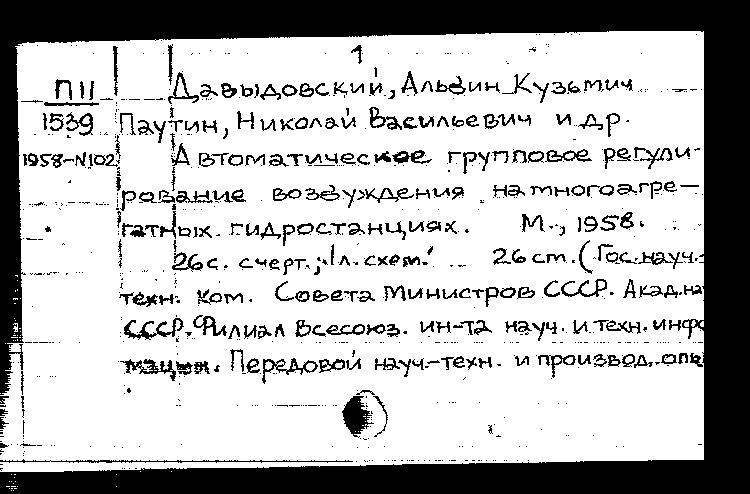 1
П 11 Давыдовский, Альвин Кузьмич
1539 Паутин, Николай Васильевич и др.
1958-N102 Автоматическое групповое регули-
рование возбуждения на многоагре-
гатных гидростанциях. М., 1958.
26 с. черт.; 1 л. схем. 26 cm. (Гос. науч.-
техн. ком. Совета Министров СССР. Акад. на
СССР. Филиал Всесоюз. ин-та науч. и техн. инфо
мации. Передовой науч.-техн. и производ. опы